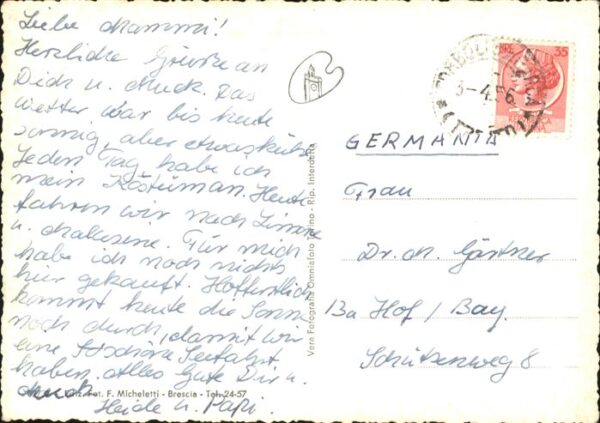 Liebe Mammi!
Herzliche Grüße an
Dich u. Muck. Das
Wetter war bis heute
sonnig, aber etwas kühl.
Jeden Tag habe ich
mein Kostüm an. Heute
fahren wir nach Limone
u. Malcesine. Für mich
habe ich noch nichts
hier gekauft. Hoffentlich
kommt heute die Sonne
noch durch, damit wir
eine schöne Seefahrt
haben. Alles Gute Dir u.
Muck
Heide u. Papi.
Fot. F. Micheletti - Brescia - Tel. 24-57
Vera Fotografia Omniafoto Torino - Rip. Interdetta
35
3-4.56
GERMANIA
Frau
Dr. M. Gärtner
13a Hof / Bay.
Schützenweg 8